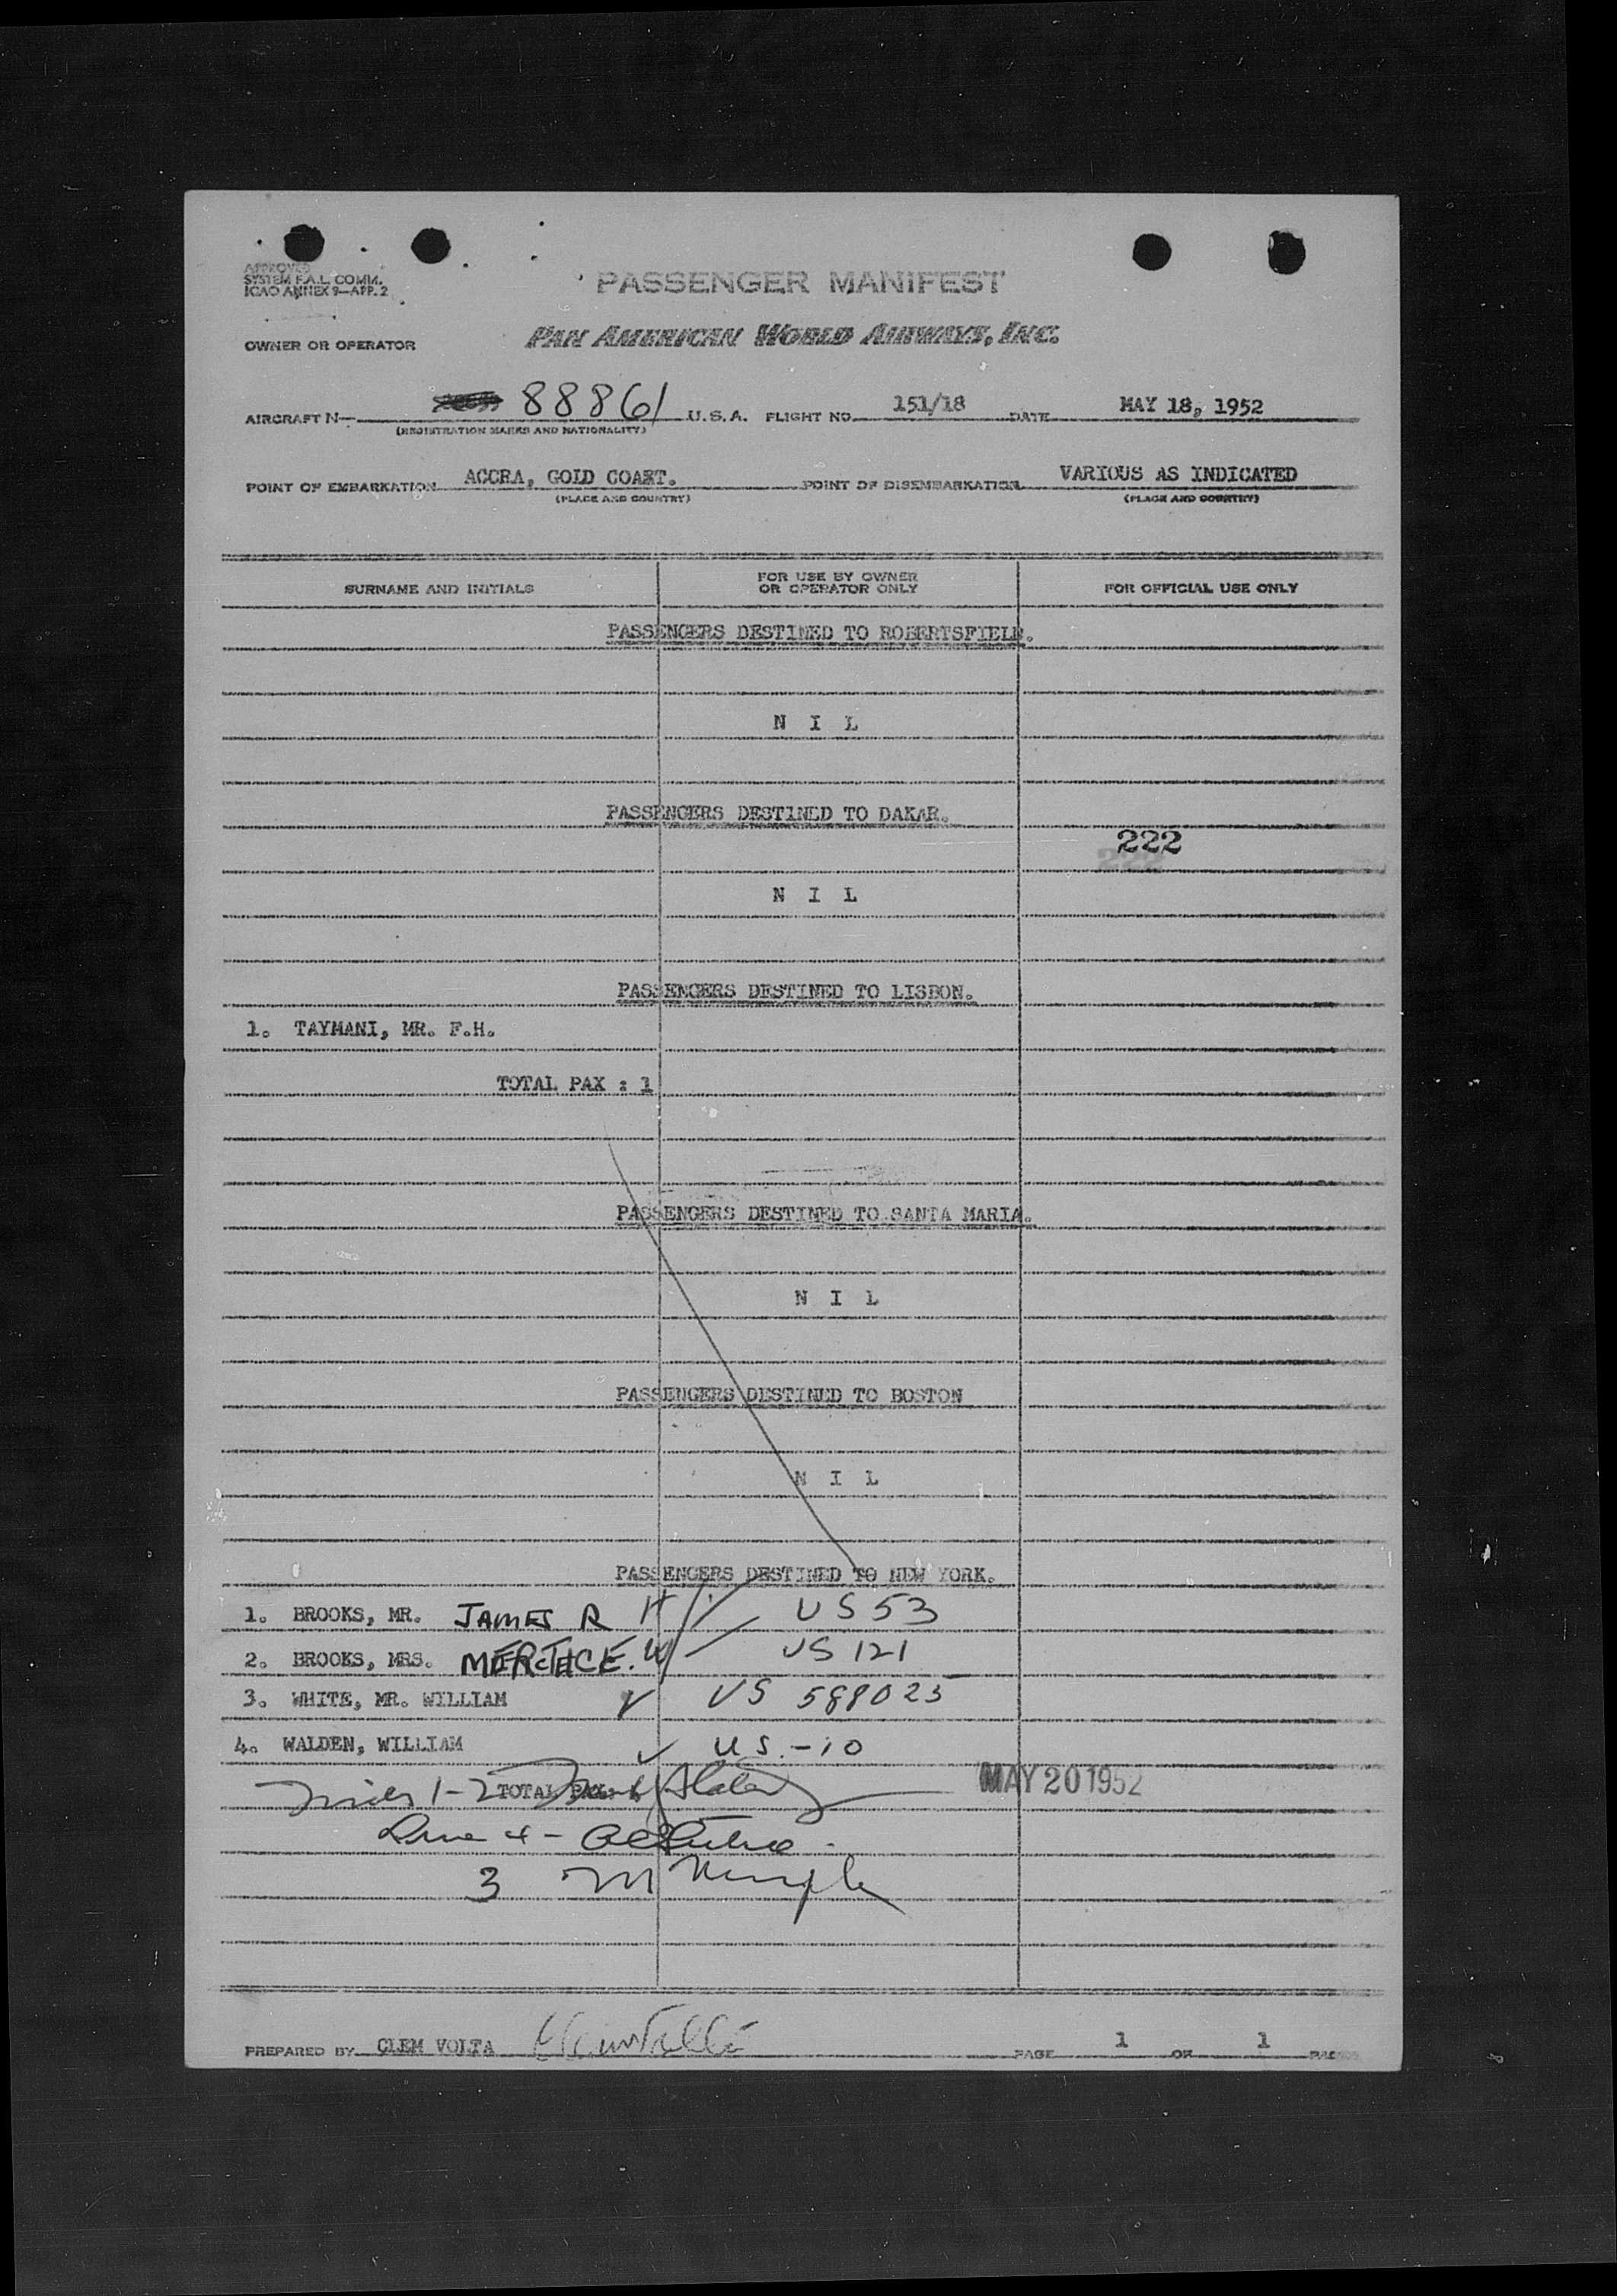 APPROVED
SYSTEM F.A.L. COMM.
ICAO ANNEX 9—APP. 2
PASSENGER MANIFEST
OWNER OR OPERATOR PAN AMERICAN WORLD AIRWAYS, INC.
AIRCRAFT N— 88861 U.S.A. FLIGHT NO. 151/18 DATE MAY 18, 1952
(REGISTRATION MARKS AND NATIONALITY)
POINT OF EMBARKATION ACCRA, GOLD COAST. POINT OF DISEMBARKATION VARIOUS AS INDICATED
(PLACE AND COUNTRY) (PLACE AND COUNTRY)
SURNAME AND INITIALS FOR USE BY OWNER OR OPERATOR ONLY FOR OFFICIAL USE ONLY
PASSENGERS DESTINED TO ROBERTSFIELD.
N I L
PASSENGERS DESTINED TO DAKAR.
222
N I L
PASSENGERS DESTINED TO LISBON.
1. TAYMANI, MR. F.H.
TOTAL PAX : 1
PASSENGERS DESTINED TO SANTA MARIA.
N I L
PASSENGERS DESTINED TO BOSTON
N I L
PASSENGERS DESTINED TO NEW YORK.
1. BROOKS, MR. JAMES R H US 53
2. BROOKS, MRS. W US 121
3. WHITE, MR. WILLIAM US 589025
4. WALDEN, WILLIAM US.-10
1-2 TOTAL PAX MAY 20 1952
Line 4 -
3 M
PREPARED BY CLEM VOLTA PAGE 1 OF 1